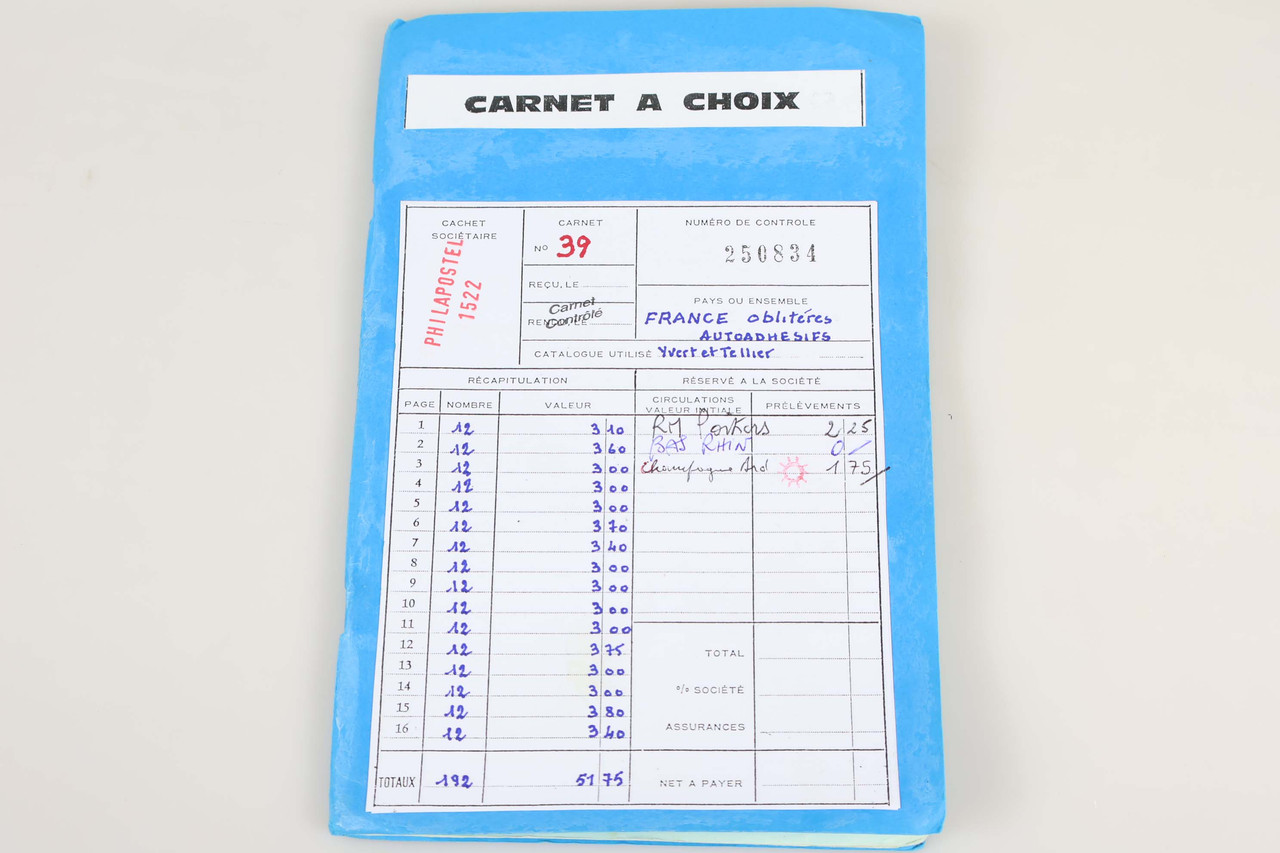 CARNET A CHOIX
CACHET SOCIÉTAIRE
PHILAPOSTEL
1522
CARNET
No 39
REÇU, LE
RENDU LE
Carnet
Contrôlé
NUMÉRO DE CONTROLE
250834
PAYS OU ENSEMBLE
FRANCE oblitéres
AUTOADHESIFS
CATALOGUE UTILISÉ Yvert et Tellier
RÉCAPITULATION RÉSERVÉ A LA SOCIÉTÉ
PAGE NOMBRE VALEUR CIRCULATIONS VALEUR INITIALE PRÉLÈVEMENTS
1 12 3 10 RM Poitiers 2 25
2 12 3 60 BAS RHIN 0
3 12 3 00 Champagne Ard 1 75
4 12 3 00
5 12 3 00
6 12 3 70
7 12 3 40
8 12 3 00
9 12 3 00
10 12 3 00
11 12 3 00
12 12 3 75
13 12 3 00
14 12 3 00
15 12 3 80
16 12 3 40
TOTAL
% SOCIÉTÉ
ASSURANCES
TOTAUX 192 51 75 NET A PAYER